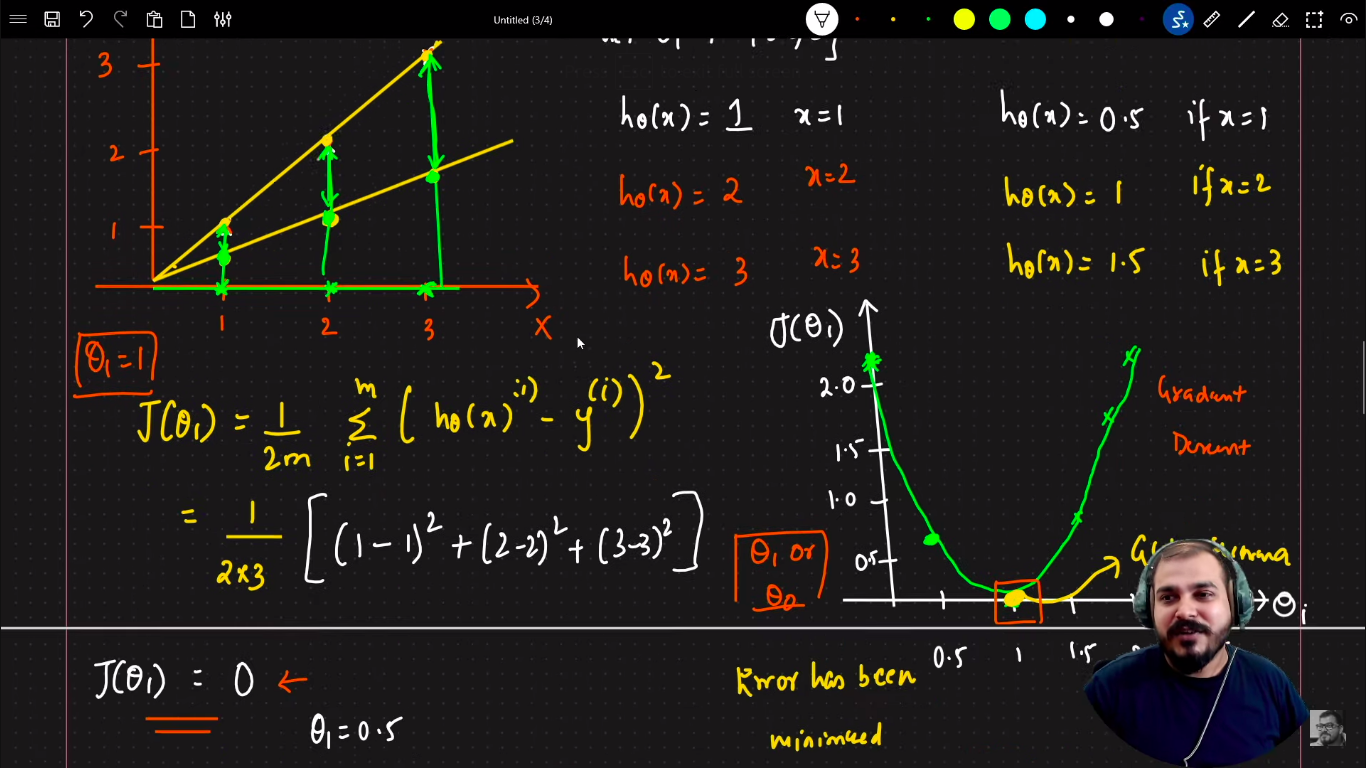 Untitled (3/4)
3
2
1
1 2 3 X
hθ(x) = 1 x=1
hθ(x) = 2 x=2
hθ(x) = 3 x=3
hθ(x) = 0.5 if x=1
hθ(x) = 1 if x=2
hθ(x) = 1.5 if x=3
θ₁ = 1
J(θ₁) = 1/2m Σ i=1 m ( hθ(x)⁽ⁱ⁾ - y⁽ⁱ⁾ )²
= 1/2x3 [ (1-1)² + (2-2)² + (3-3)² ]
J(θ₁)
2.0
1.5
1.0
0.5
0.5 1 1.5
θ₁
Gradant
Descent
θ₁ or
θ₀
J(θ₁) = 0 ←
θ₁ = 0.5
Error has been
minimized